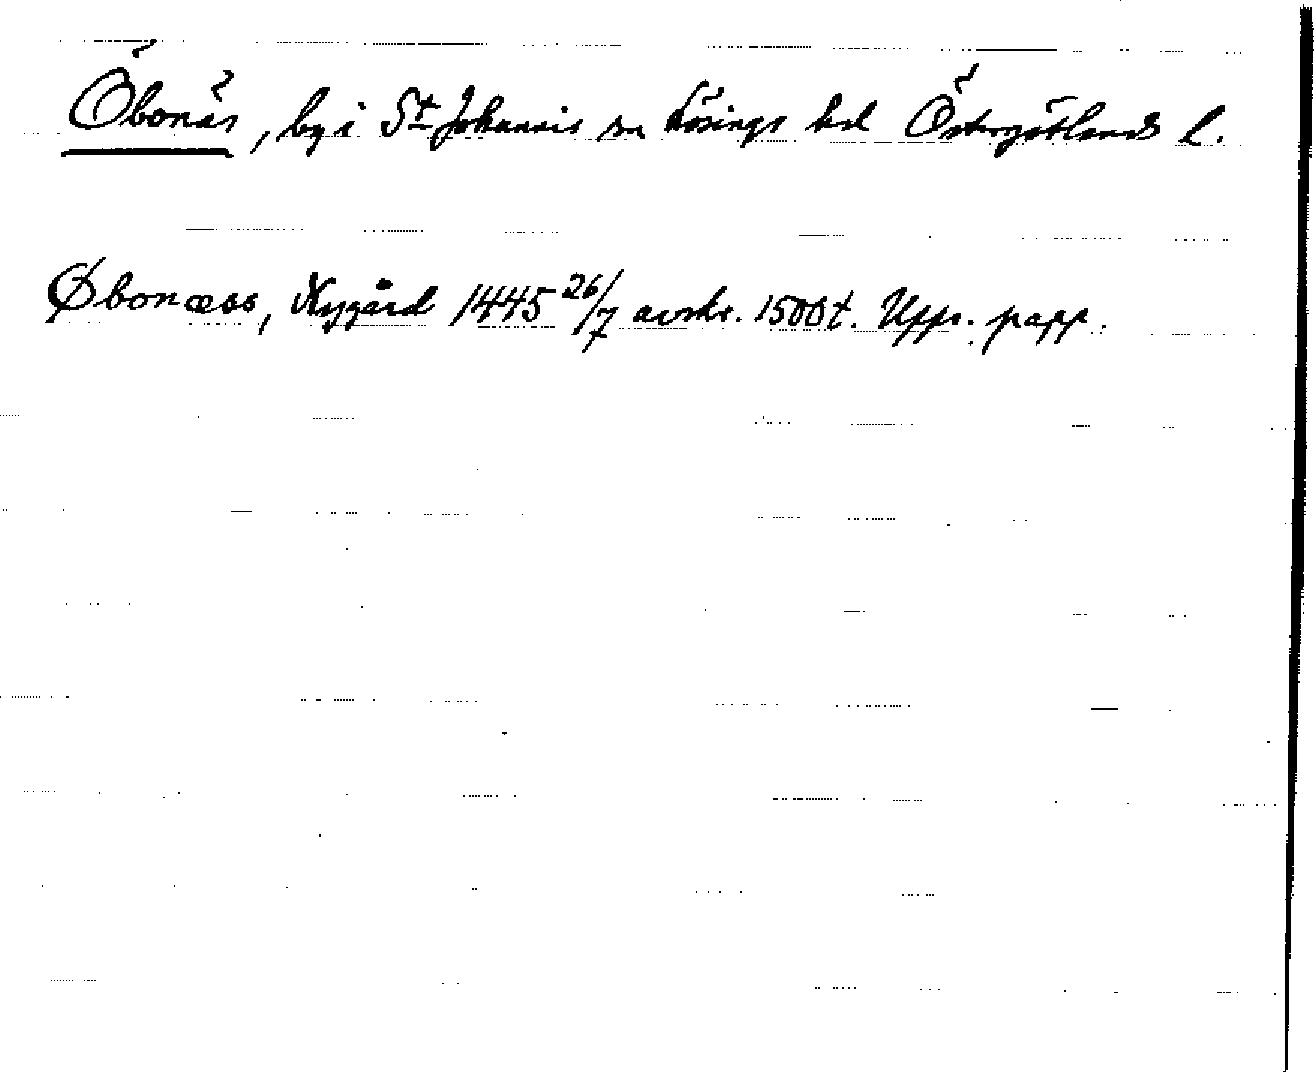 Öbonäs, by i St Johannis sn Lösings hd Östergötlands l.
Øbonæss, Nygård 1445 26/7 avskr. 1500t. Upps. papp.